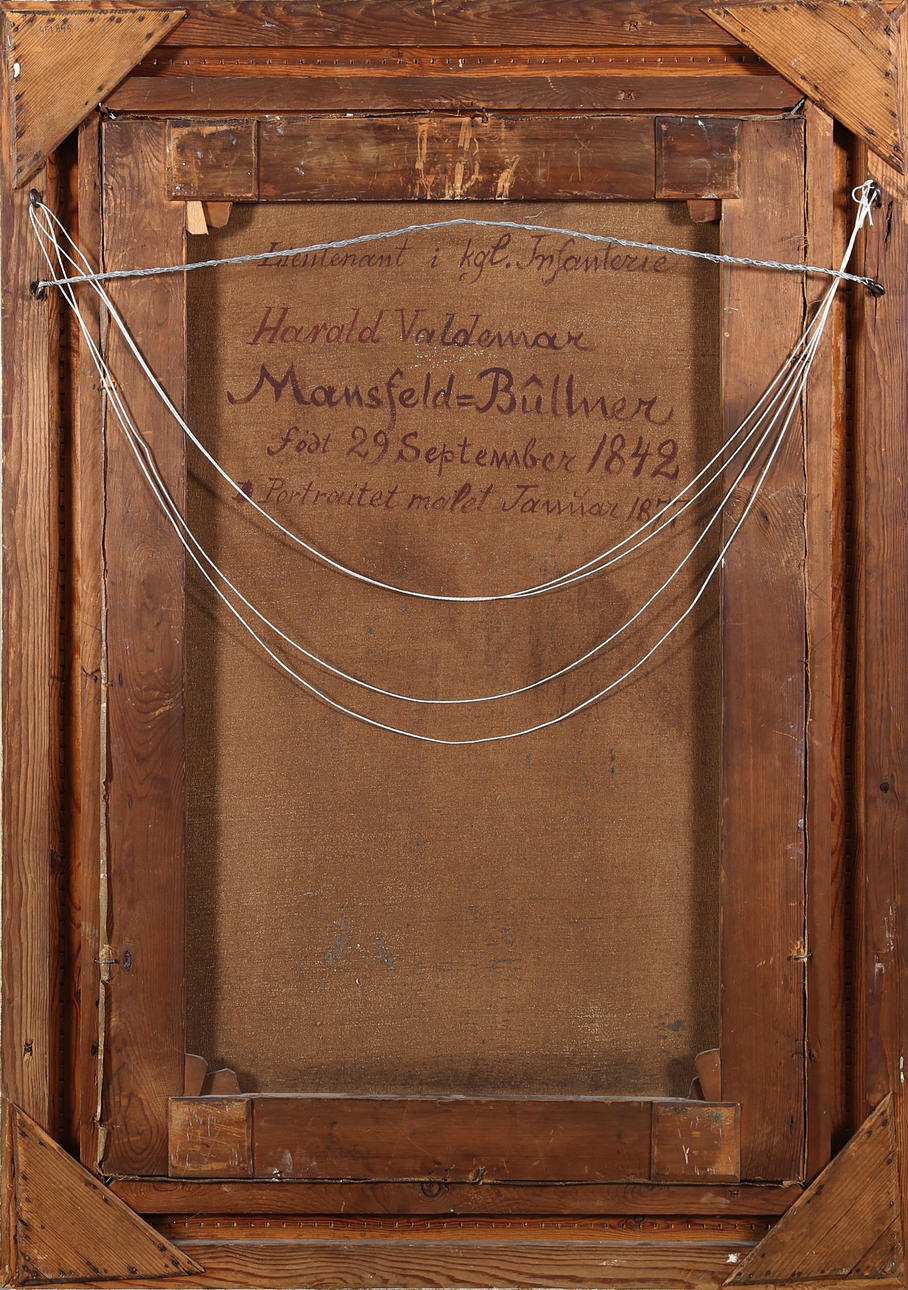 Lieutenant i kgl. Infanterie
Harald Valdemar
Mansfeld=Bûllner
født 29 September 1842
Portraitet malet Januar 1877